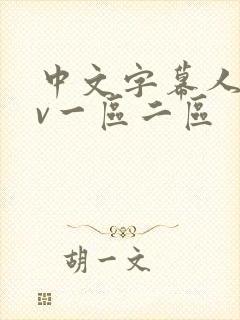 中文字幕人
v一區二區
胡一文